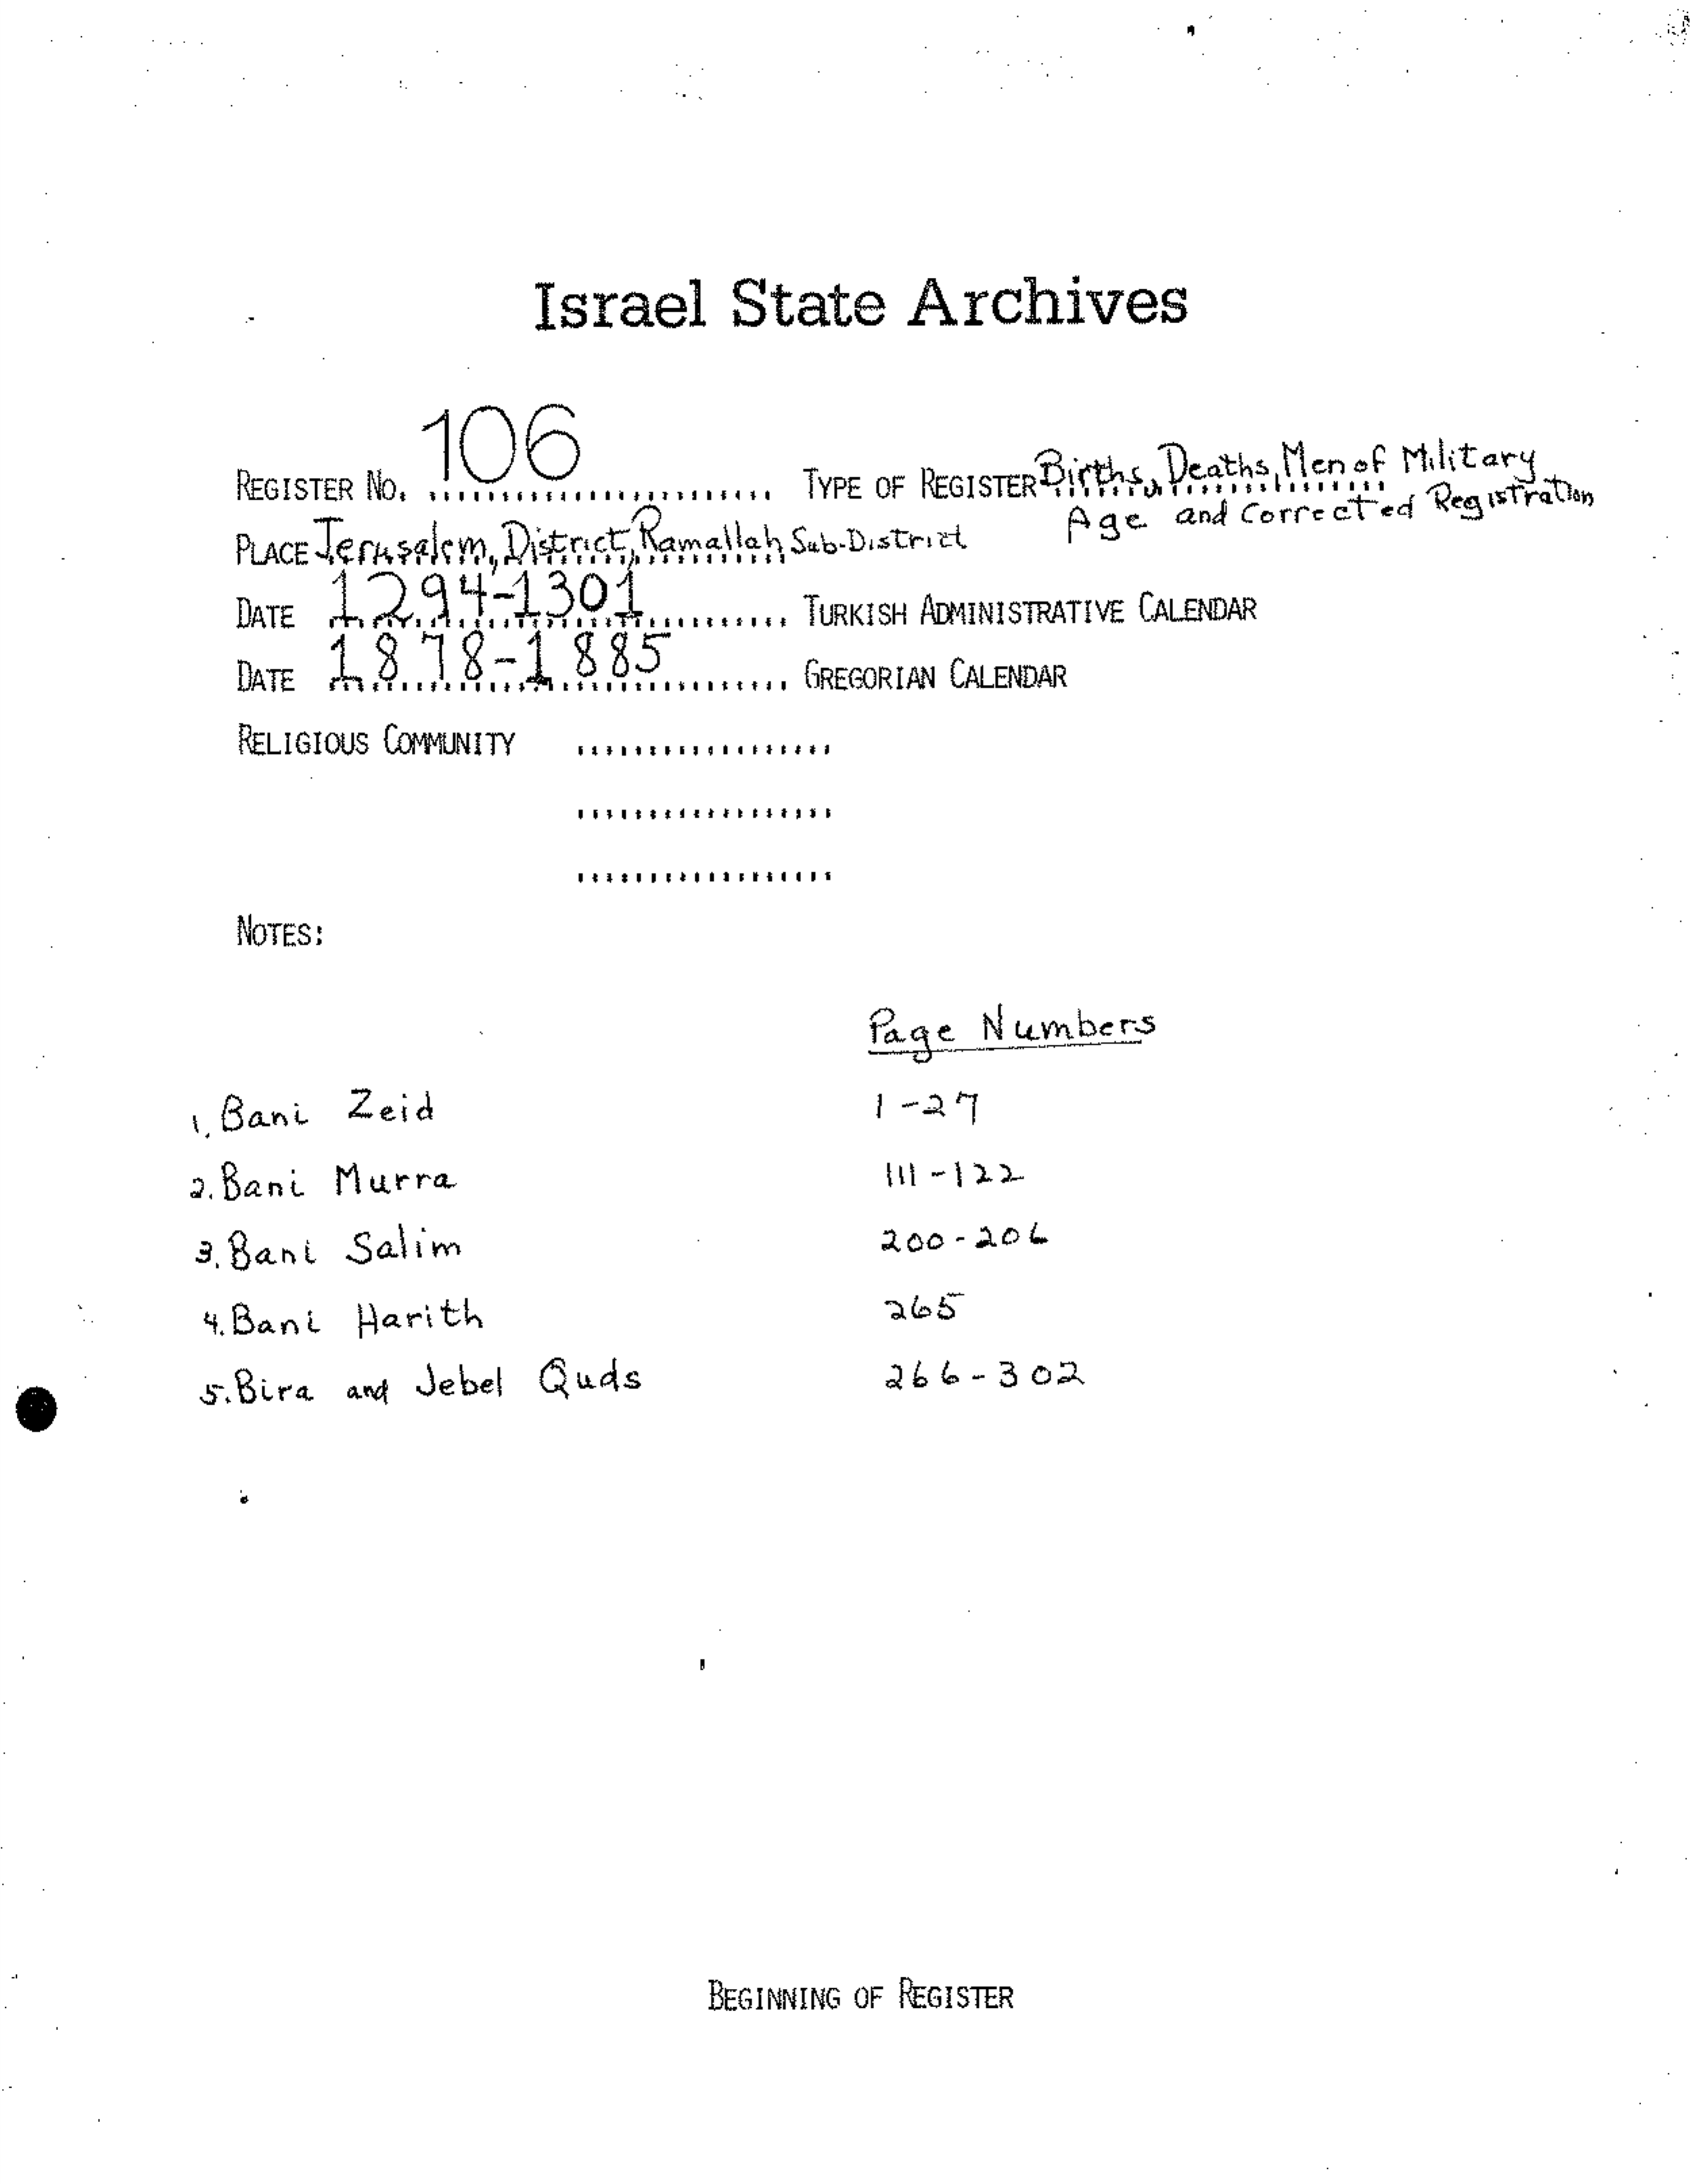 Israel State Archives
REGISTER NO. 106 TYPE OF REGISTER Births, Deaths, Men of Military
Age and Corrected Registration
PLACE Jerusalem, District, Ramallah Sub-District
DATE 1294-1301 TURKISH ADMINISTRATIVE CALENDAR
DATE 1878-1885 GREGORIAN CALENDAR
RELIGIOUS COMMUNITY
NOTES:
Page Numbers
1. Bani Zeid 1-27
2. Bani Murra 111-122
3. Bani Salim 200-206
4. Bani Harith 265
5. Bira and Jebel Quds 266-302
BEGINNING OF REGISTER